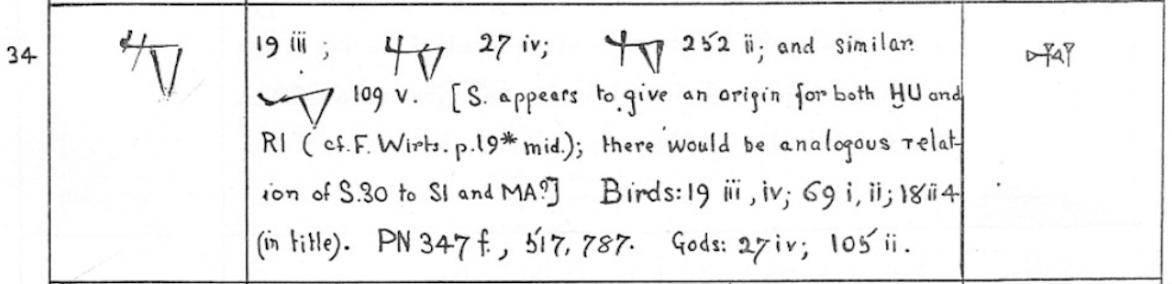 34
19 iii ; 27 iv; 252 ii; and similar.
109 v. [S. appears to give an origin for both HU and
RI (cf. F. Wirts. p.19* mid.); there would be analogous relat-
ion of S.30 to SI and MA?] Birds: 19 iii, iv; 69 i, ii; 18 ii 4
(in title). PN 347 f., 517, 787. Gods: 27 iv; 105 ii.